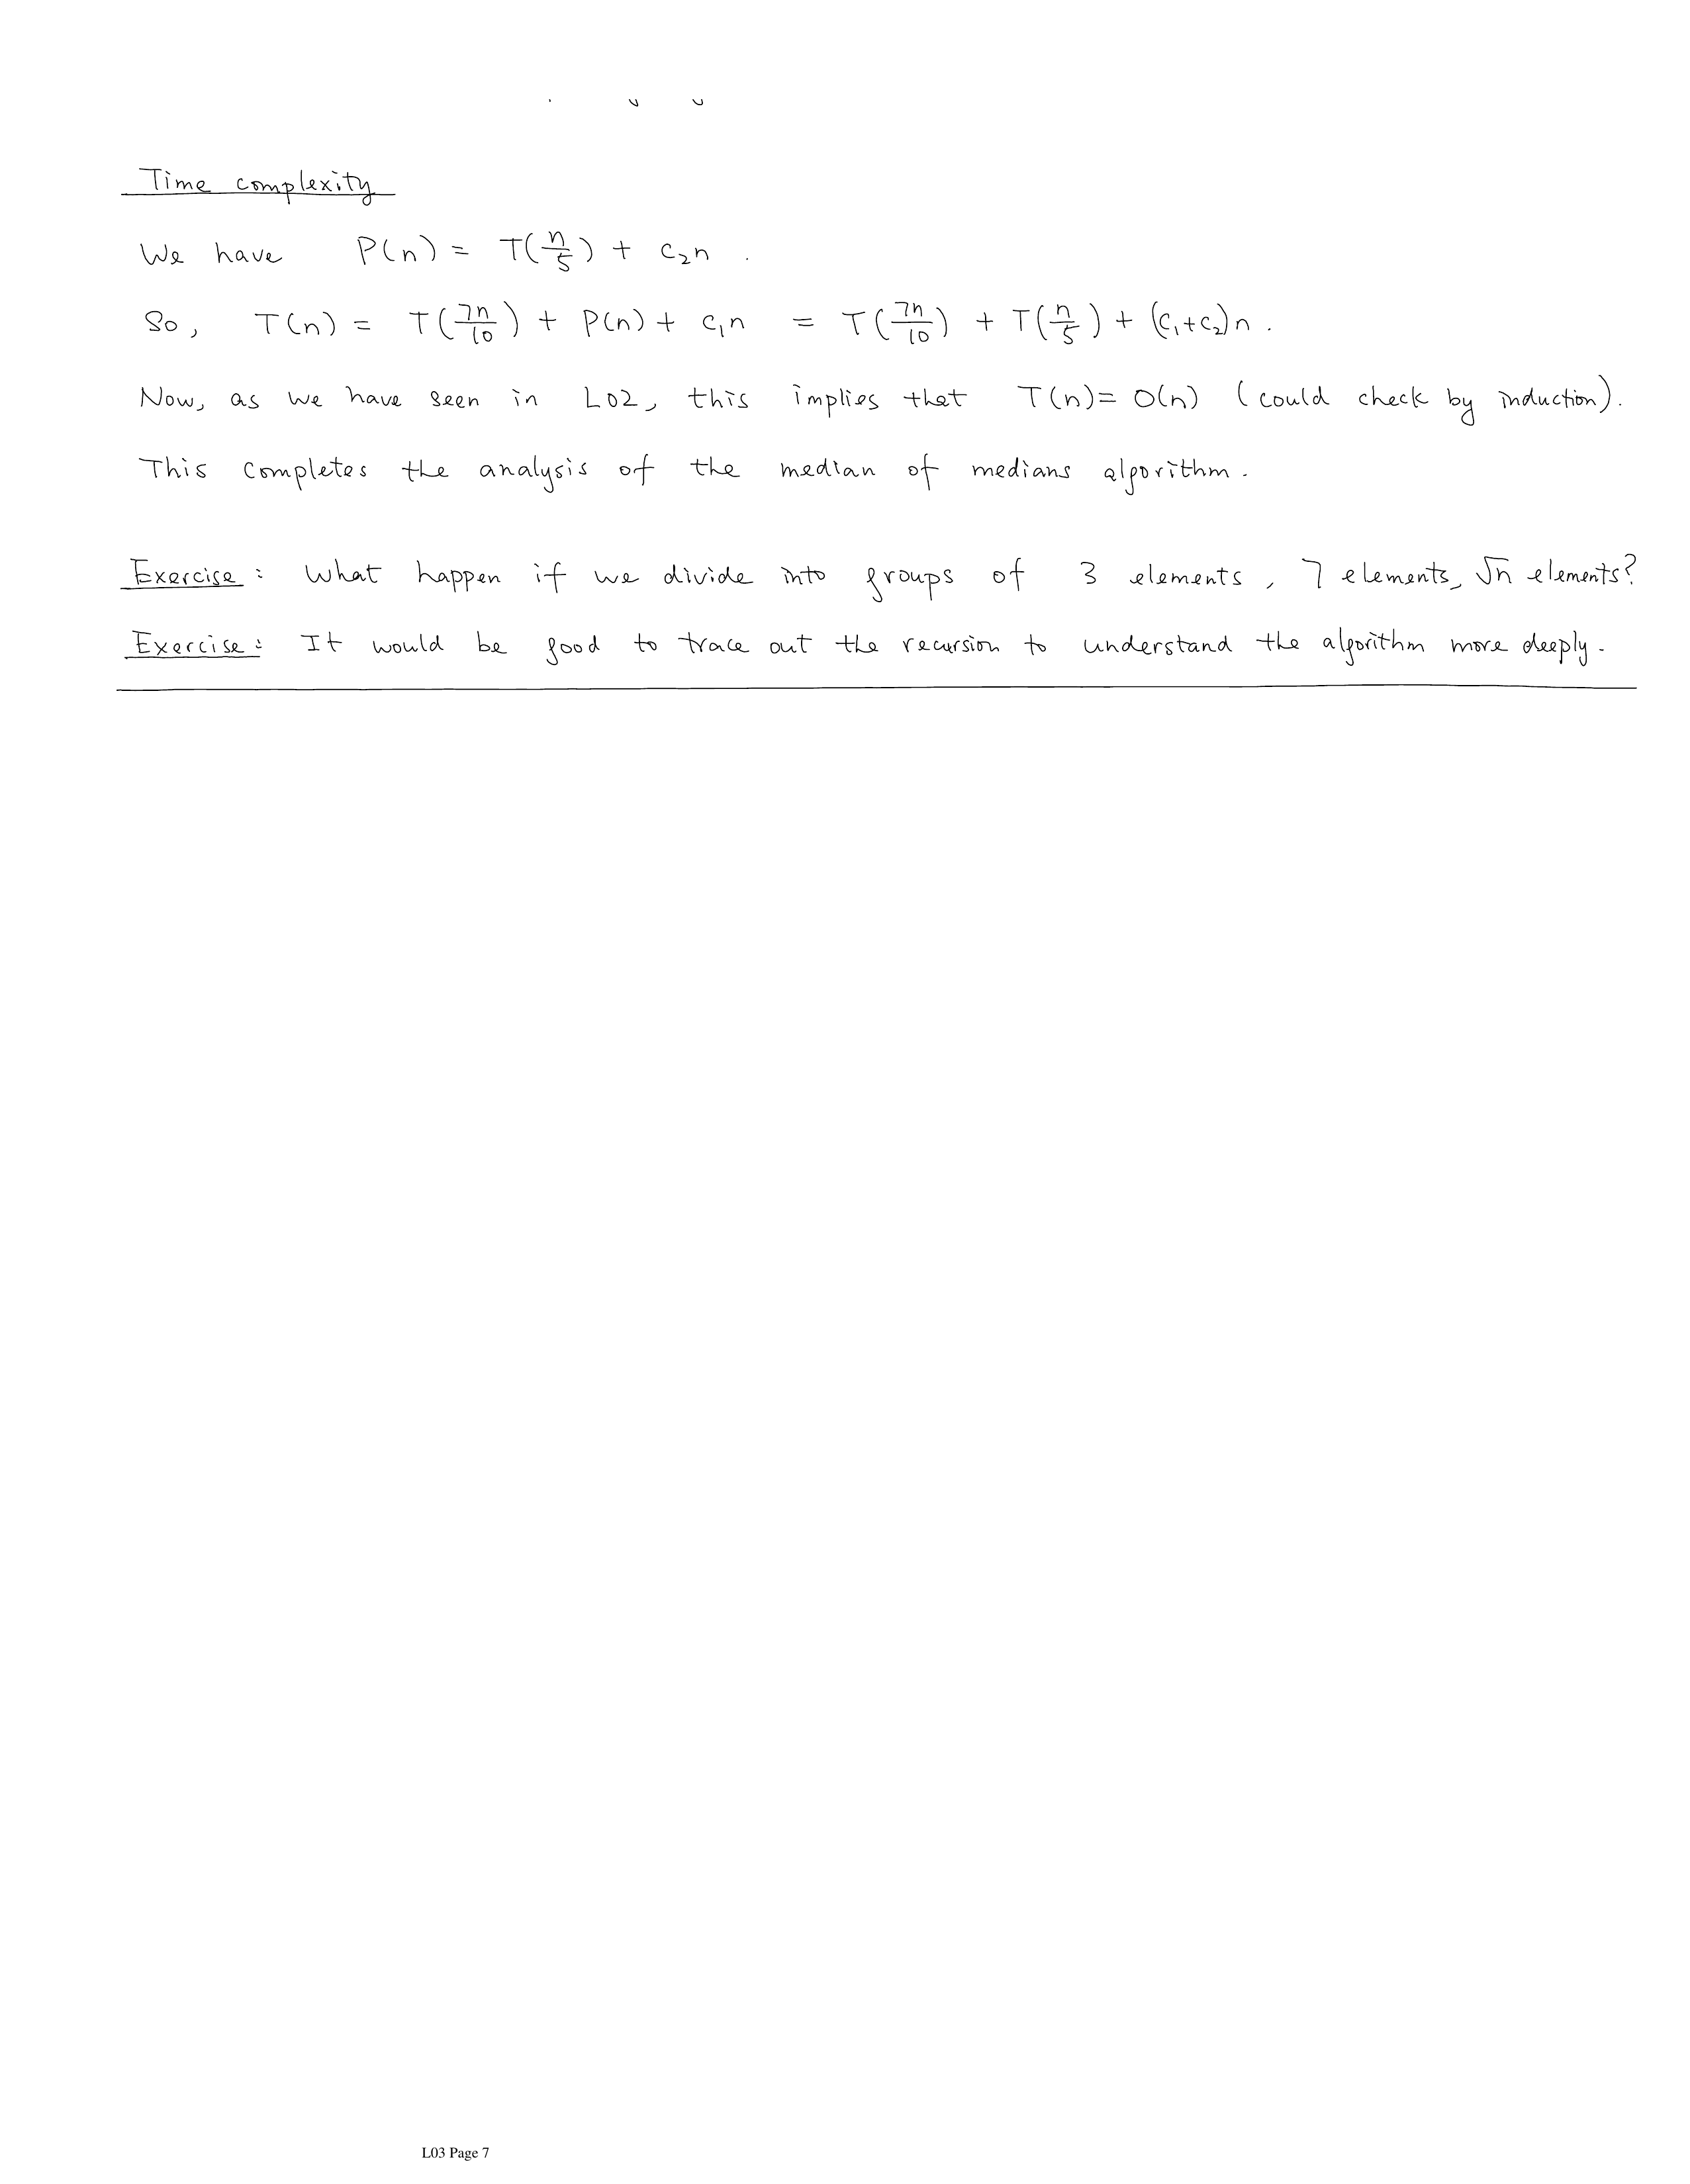 Time complexity
We have P(n) = T(n/5) + c₂n .
So, T(n) = T(7n/10) + P(n) + c₁n = T(7n/10) + T(n/5) + (c₁+c₂)n .
Now, as we have seen in L02, this implies that T(n)= O(n) (could check by induction).
This completes the analysis of the median of medians algorithm.
Exercise: What happen if we divide into groups of 3 elements, 7 elements, √n elements?
Exercise: It would be good to trace out the recursion to understand the algorithm more deeply.
L03 Page 7